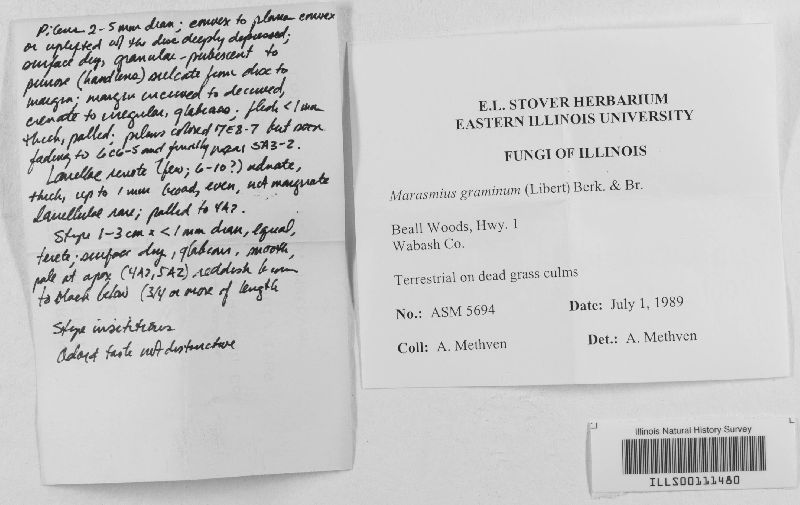 Pileus 2-5 mm diam; convex to plano-convex
or uplifted w/ the disc deeply depressed;
surface dry, granular-pubescent to
pruinose (handlens) sulcate from disc to
margin; margin incurved to decurved,
crenate to irregular, glabrous; flesh <1 mm
thick, pallid; pileus colored 7E8-7 but soon
fading to 6C6-5 and finally near 5A3-2.
Lamellae remote (few; 6-10?) adnate,
thick, up to 1 mm broad, even, not marginate
lamellulae rare; pallid to 4A2.
Stipe 1-3 cm x <1 mm diam, equal,
terete; surface dry, glabrous, smooth,
pale at apex (4A2, 5A2) reddish brown
to black below (3/4 or more of length
Stipe insititious
Odor & taste not distinctive
E.L. STOVER HERBARIUM
EASTERN ILLINOIS UNIVERSITY
FUNGI OF ILLINOIS
Marasmius graminum (Libert) Berk. & Br.
Beall Woods, Hwy. 1
Wabash Co.
Terrestrial on dead grass culms
No.: ASM 5694 Date: July 1, 1989
Coll: A. Methven Det.: A. Methven
Illinois Natural History Survey
ILLS00111480